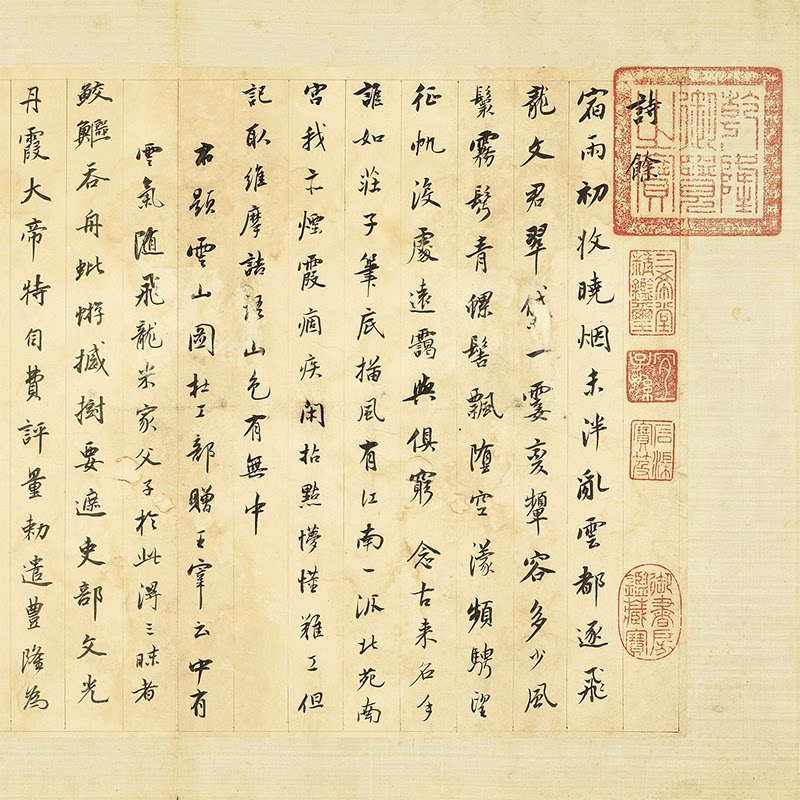 詩餘
宿雨初收曉烟未泮亂雲都逐飛
龍文君翠黛一霎變顰容多少風
鬟霧髩青螺髻飄墮空濛頻騁望
征帆沒處遠靄與俱窮 念古來名手
誰如莊子筆底描風有江南一派北苑南
宮我亦煙霞痼疾閑拈點懵懂難工但
記取維摩詰語山色有無中
右題雲山圖杜工部贈王宰云中有
雲氣隨飛龍米家父子於此得三昧者
鮫鱷吞舟蚍蜉撼樹要遮吏部文光
丹霞大帝特費評量勅遣豊隆為
乾隆御覽之寶
三希堂精鑑璽
宜子孫
石渠寶笈
御書房鑑藏寶